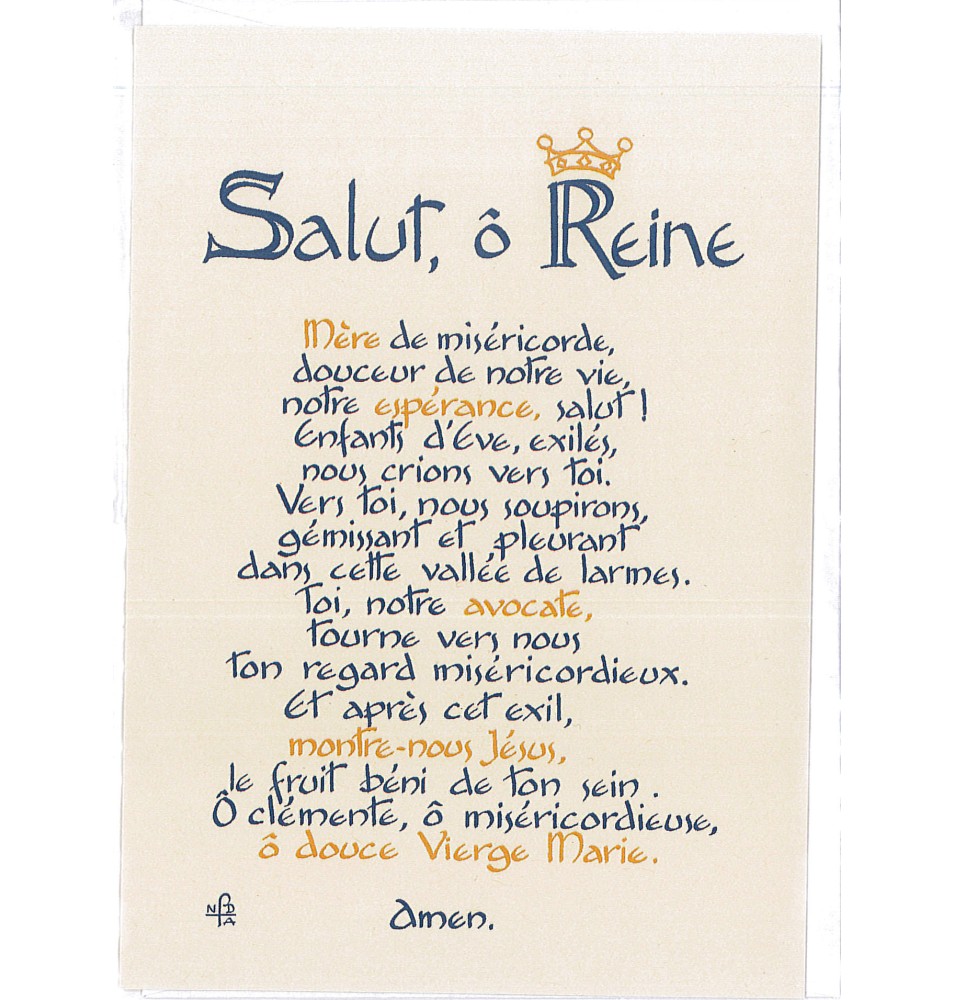 Salut, ô Reine
Mère de miséricorde,
douceur de notre vie,
notre espérance, salut !
Enfants d'Eve, exilés,
nous crions vers toi.
Vers toi, nous soupirons,
gémissant et pleurant
dans cette vallée de larmes.
Toi, notre avocate,
tourne vers nous
ton regard miséricordieux.
Et après cet exil,
montre-nous Jésus,
le fruit béni de ton sein.
Ô clémente, ô miséricordieuse,
ô douce Vierge Marie.
Amen.
N D
A